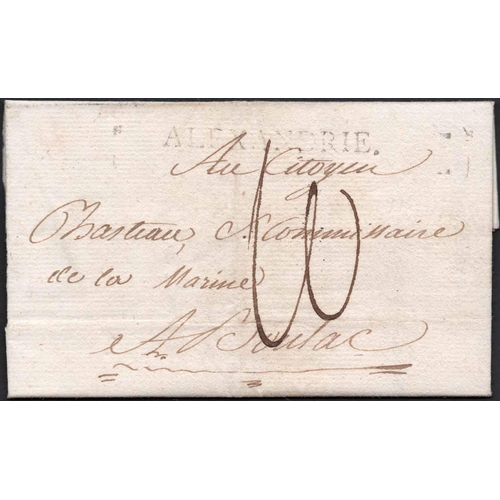 ALEXANDRIE.
Au Citoyen
Chasteau, S. Commissaire
de la Marine
A Boulac